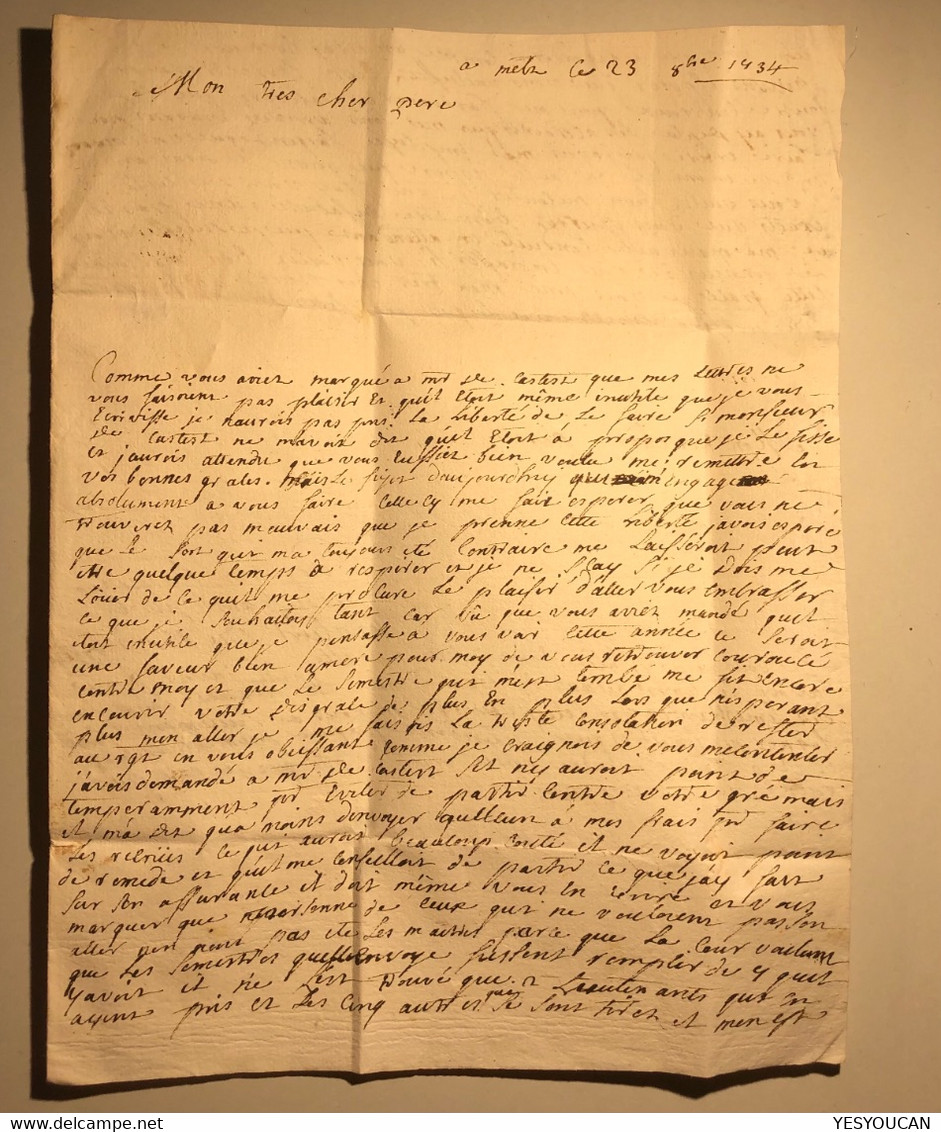 a metz ce 23 8bre 1734
Mon tres cher pere
Comme vous aviez marqué a mr de Castest que mes Lettres ne
vous faisoient pas plaisir Et qu'il Etoit même inutile que je vous
Ecrivisse je naurois pas pris La Liberté de Le faire Si monsieur
de Castest ne mavoit dit qu'il Etoit á propos que je Le fisse
Et jaurois attendu que vous Eussiez bien voulu me remettre En
vos bonnes graces. mais Le sujet daujourdhuy qui engage
absolument a vous faire Celle Cy me fait esperer que vous ne
trouverez pas mauvais que je prenne Cette liberté javois esperé
que Le sort qui ma toujours été Contraire me Laisseroit peut
etre quelque temps á respirer et je ne sçay si je dois me
Loüer de Ce quil me procure Le plaisir d'aller vous embrasser
Ce que je souhaitois tant Car vû que vous aviez mandé quil
etoit inutile que je pensasse a vous voir Cette année Ce seroit
une faveur bien amere pour moy de vous retrouver Couroucé
Contre moy et que Le Semestre qui mest tombé me fit encore
encourir votre disgrace de plus En plus Lors que nesperant
plus men aller je me faisois La triste Consolation de rester
au rgt en vous obeissant Comme je Craignois de vous mecontenter
j'avois demandé a mr de Castest Sil ny auroit point de
temperamment pr Eviter de partir Contre votre gré mais
il má dit quá moins d'envoyer quelleun a mes frais pr faire
Les recrües Ce qui auroit beaucoup Couté il ne voyoit point
de remede et qu'il me Conseilloit de partir Ce que jay fait
Sur Son assurance il doit même vous En Ecrire et vous
marquer que personne de Ceux qui ne vouloient pas Son
aller nen nont pas été Les maitres parce que La Cour voulant
que Les Semestres quelle Envoye fussent remplis de 7 quil
y avoit il ne Sest trouvé que 2 Lieutenants qui En
ayent pris et Les Cinq autres Se Sont tirez et men est
YESYOUCAN